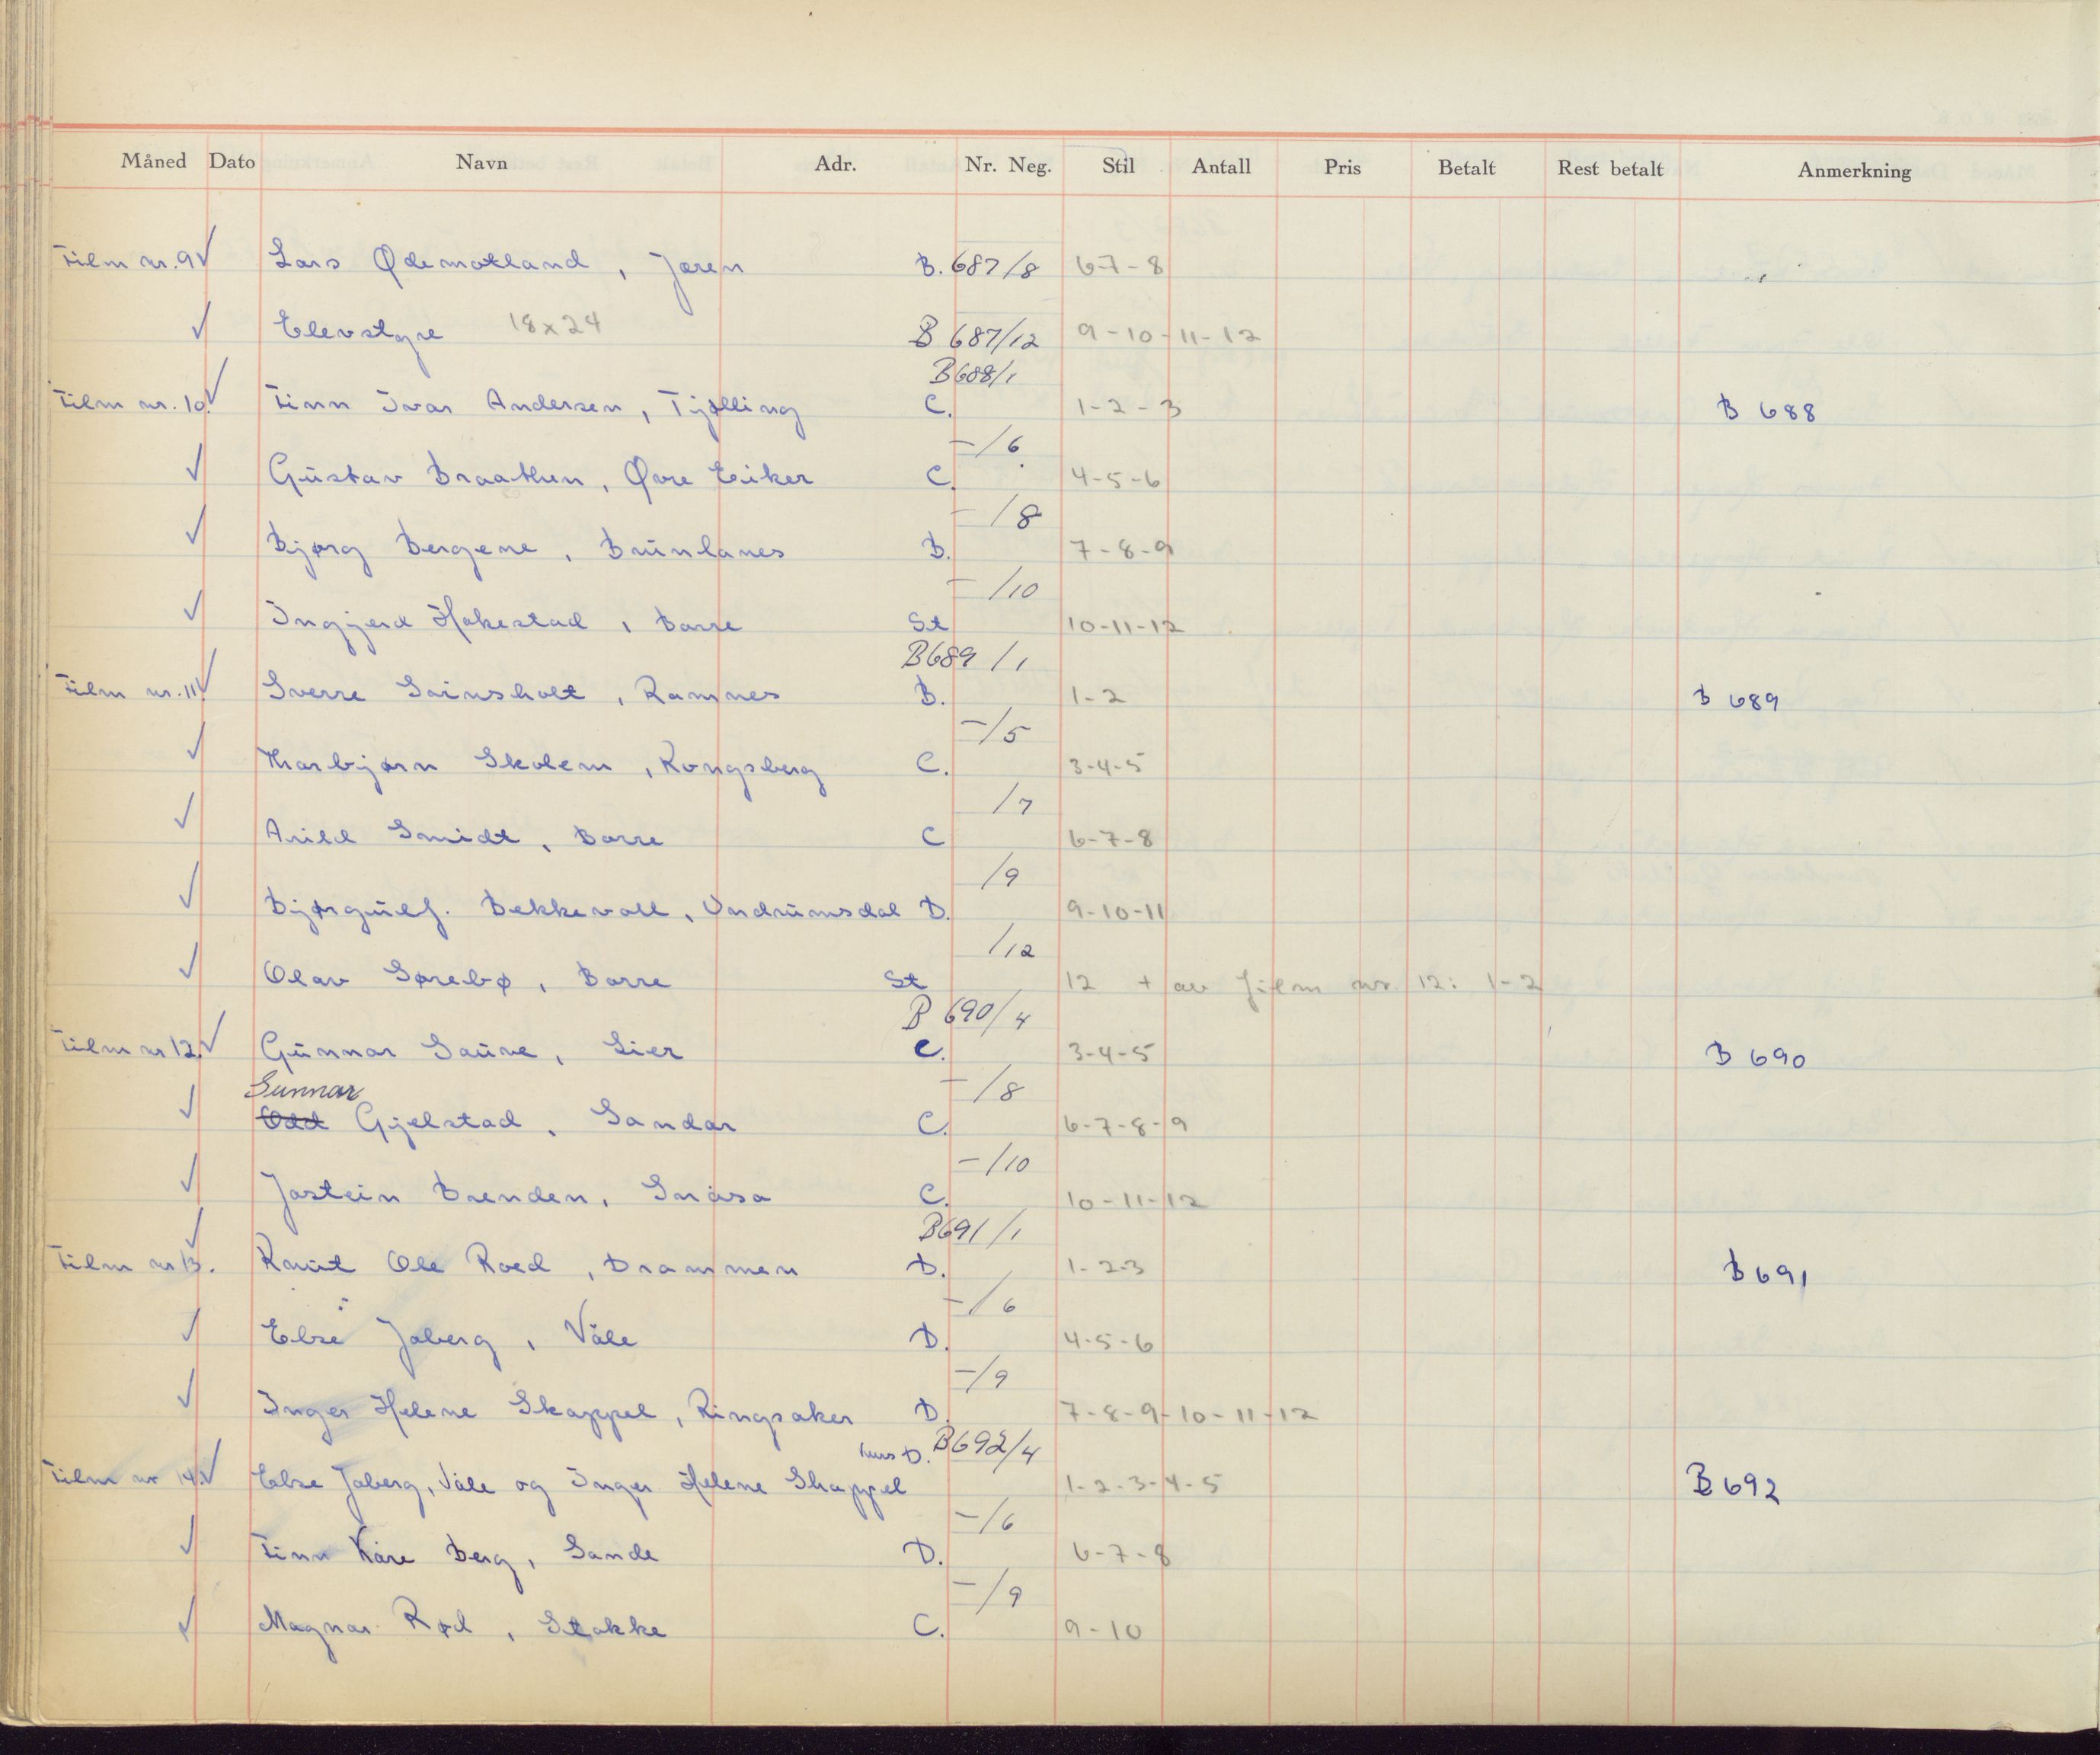 Måned Dato Navn Adr. Nr. Neg. Stil Antall Pris Betalt Rest betalt Anmerkning
Film nr. 9 ✓ Lars Ødemotland, Jæren B. 687/8 6-7-8
✓ Elevstyre 18x24 B 687/12 9-10-11-12
B688/1
Film nr. 10. ✓ Finn Ivar Andersen, Tjølling C. 1-2-3 B 688
-/6
✓ Gustav Braathen, Øvre Eiker C. 4-5-6
-/8
✓ Bjørg Bergene, Brunlanes D. 7-8-9
-/10
✓ Ingjerd Hakestad, Borre St 10-11-12
B689/1
Film nr. 11. ✓ Sverre Svinsholt, Ramnes B. 1-2 B 689
-/5
✓ Thorbjørn Skolem, Kongsberg C. 3-4-5
/7
✓ Arild Smidt, Borre C 6-7-8
/9
✓ Bjørgulf. Bekkevoll, Undrumsdal D. 9-10-11
/12
✓ Olav Sørebø, Borre St 12 + av film nr 12: 1-2
B 690/4
Film nr 12. ✓ Gunnar Sauve, Lier C. 3-4-5 B 690
Gunnar -/8
✓ Odd Gjelstad, Sandar C. 6-7-8-9
-/10
✓ Jostein Brenden, Snåsa C. 10-11-12
B691/1
Film nr 13. ✓ Knut Ole Roed, Drammen D. 1-2-3 B 691
-/6
✓ Else Joberg, Våle D. 4-5-6
-/9
✓ Inger Helene Skappel, Ringsaker D. 7-8-9-10-11-12
D. B692/4
Film nr 14. ✓ Else Joberg, Våle og Inger Helene Skappel 1-2-3-4-5 B 692
-/6
✓ Finn Kåre Berg, Sande D. 6-7-8
-/9
✓ Magnar Rød, Stokke C. 9-10